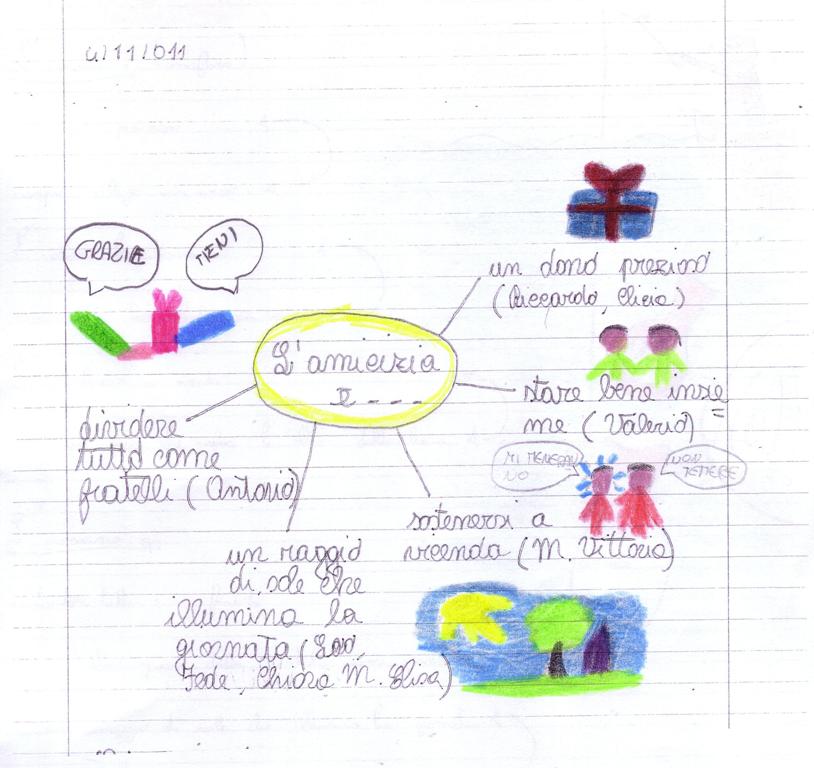 4/11/011
GRAZIE
TIENI
un dono prezioso
(Riccardo, Clizia)
L'amicizia
È - - -
stare bene insie
me (Valerio)
dividere
tutto come
fratelli (Antonio)
MI MENERAN
NO
NON
TEMERE
sostenersi a
vicenda (M. Vittoria)
un raggio
di sole che
illumina la
giornata (
Fede, Chiara M. Elisa)